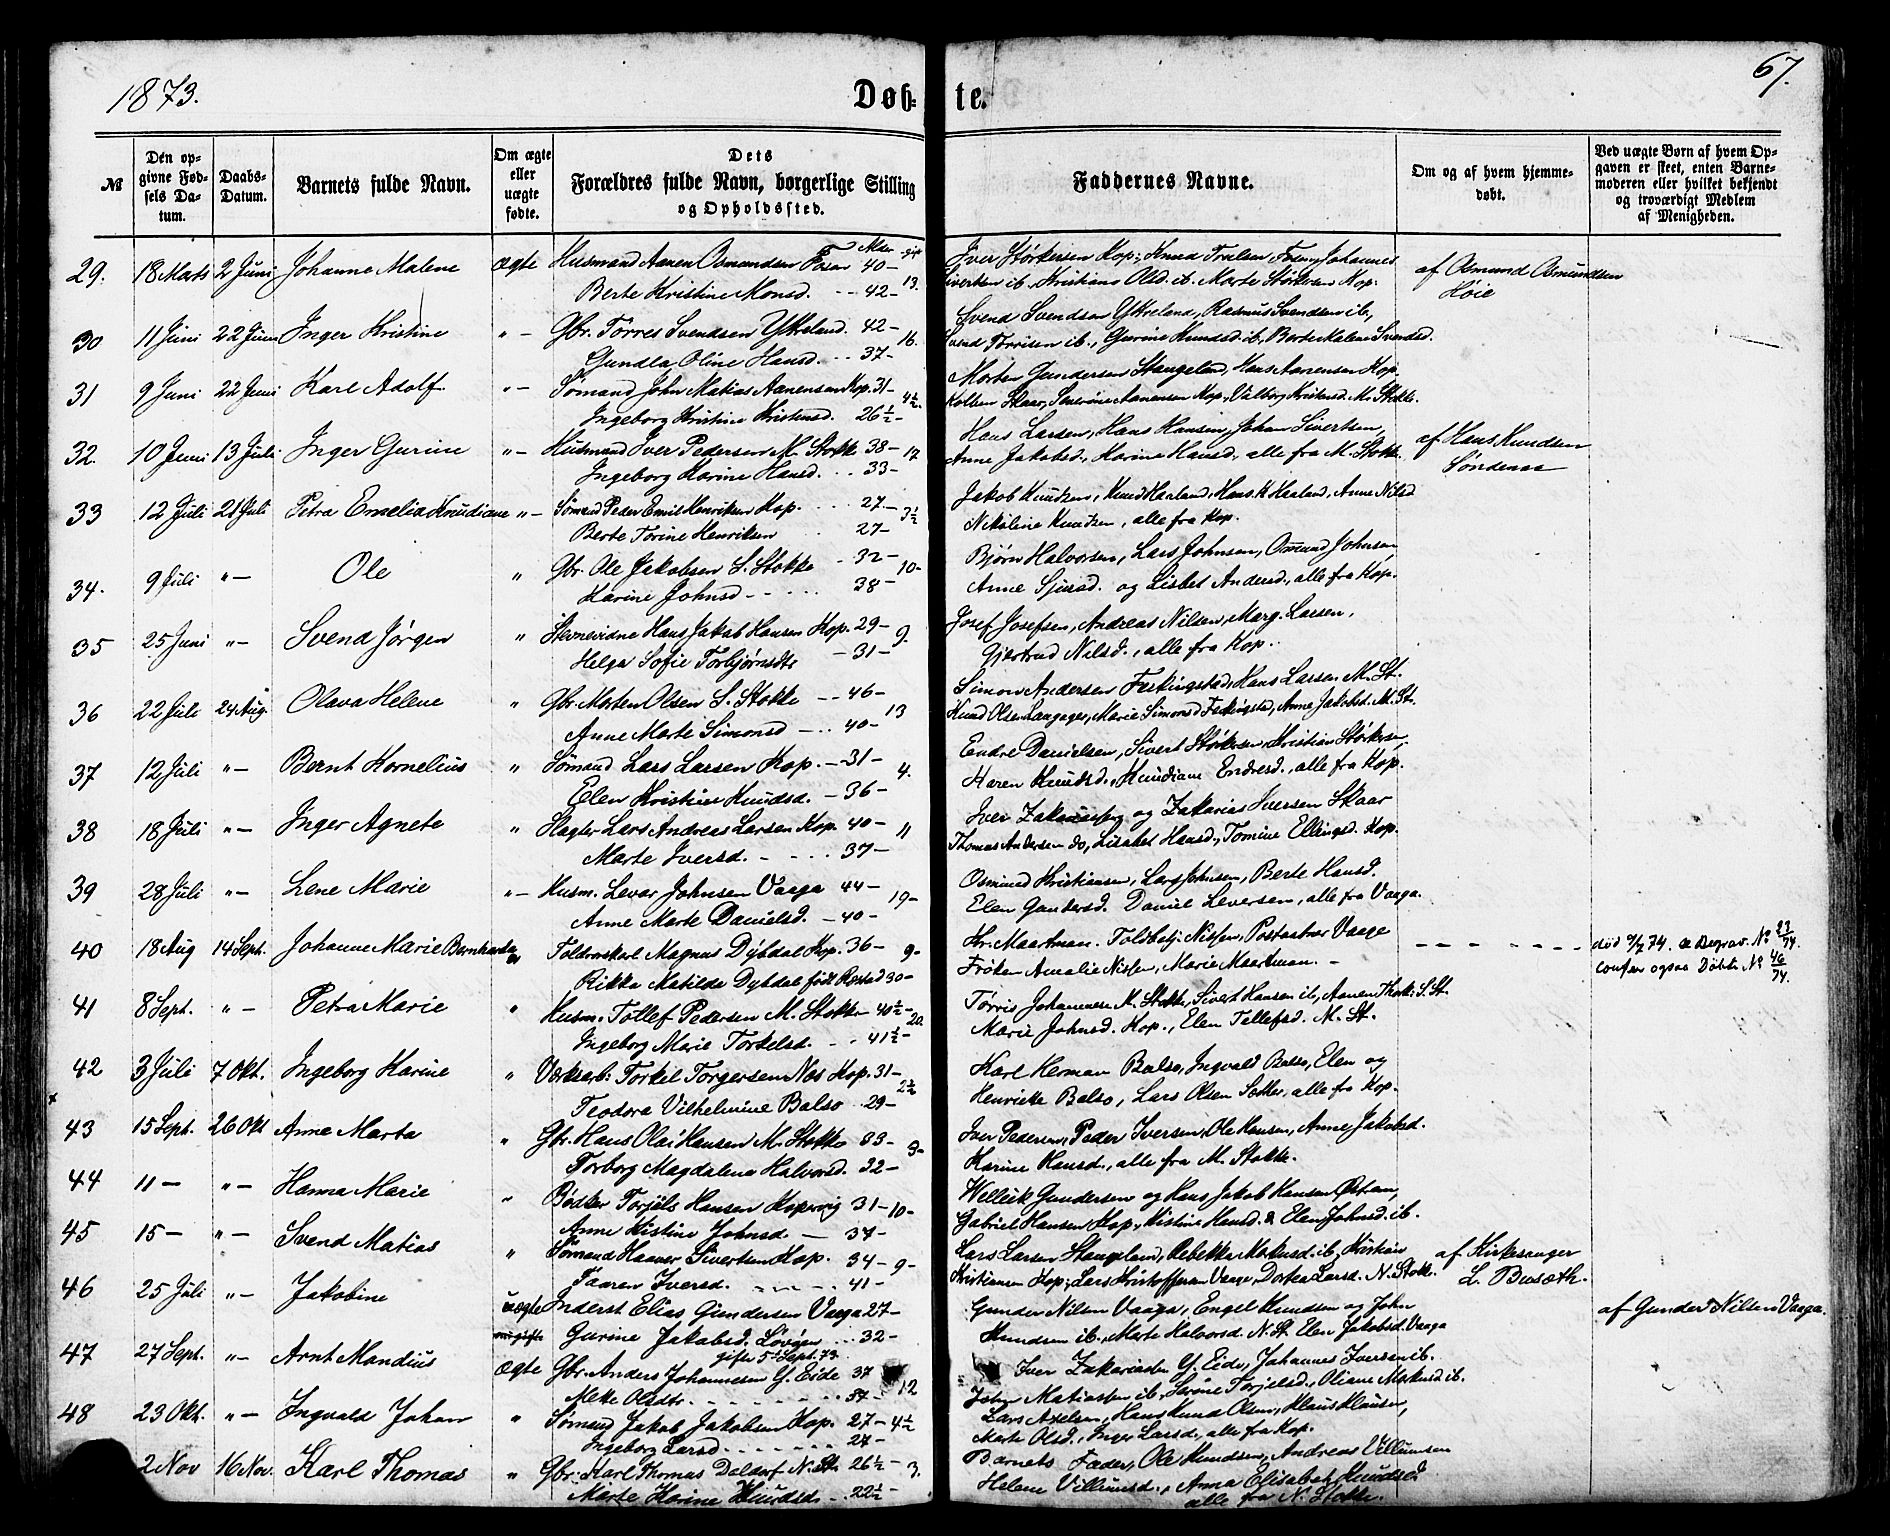 1873.
Døb-
te.
67.
№
Den opgivne Fødsels Datum.
Daabs-Datum.
Barnets fulde Navn.
Om ægte eller uægte fødte.
Dets Forældres fulde Navn, borgerlige Stilling og Opholdssted.
Faddernes Navne.
Om og af hvem hjemmedøbt.
Ved uægte Børn af hvem Opgaven er skeet, enten Barnemoderen eller hvilket bekjendt og troværdigt Medlem af Menigheden.
29. 18 Marts 2 Juni Johanne Malene ægte Husmand Aanen Osmundsen Fosen 40 –
Berte Kristine Monsd. 42 – 13.
Iver Størkersen Kop., Knud Trulsen Fosen, Johannes
Sivertsen ib., Kristiane Olsd. ib. Marte Størkersen Kop.
af Osmund Osmundsen
Høie
30 11 Juni 22 Juni Inger Kristine " – Gbr. Torres Svendsen Ytreland. 42 – 16.
Gundla Oline Hansd. 37 –
Svend Svendsen Ytreland, Rasmus Svendsen ib.,
Svend Torrisen ib., Gurine Knudsd. ib., Berte Malene Svendsd.
31 9 Juni 22 Juni Karl Adolf " – Sømand John Matias Aanensen Kop. 31 – 4½.
Ingeborg Kristine Kristensd. 26½ –
Morten Gundersen Stangeland, Hans Aanensen Kop.
Kolben Skaar, Severine Aanensen Kop., Valborg Kristensd. M. Stokke.
32. 10 Juni 13 Juli Inger Gurine " – Husmand Iver Pedersen M. Stokke 38 – 12
Ingeborg Karine Hansd. 33 –
Hans Larsen, Hans Hansen, Johan Sivertsen,
Anne Jakobsd., Karine Hansd., alle fra M. Stokke.
af Hans Knudsen
Søndenaa
33 12 Juli 21 Juli Petra Emelia Knudiane " – Sømand Peder Emil Henriksen Kop. 27 – 3½
Berte Torine Henriksen 27 –
Jakob Knudsen, Knud Haaland, Hans K Haaland, Anne Nilsd
Nikoline Knudsen, alle fra Kop.
34. 9 Juli " – Ole " Gbr. Ole Jakobsen S. Stokke 32 – 10 –
Karine Johnsd 38 –
Bjørn Halvorsen, Lars Johnsen, Osmund Johnsen
Anne Sjursd. og Lisbet Andersd., alle fra Kop.
35 25 Juni " – Svend Jørgen " Stevnevidne Hans Jakob Hansen Kop. 29 – 9.
Helga Sofie Torbjørnsdtr – 31 –
Josef Josefsen, Andreas Nilsen, Marg. Larsen,
Gjertrud Nilsd., alle fra Kop.
36 22 Juli 24 Aug. Olava Helene " Gbr. Morten Olsen S. Stokke – 46 – 13
Anne Marte Simonsd 40 –
Simon Andersen Ferkingstad, Hans Larsen M. St.
Knud Olsen Langager, Marie Simonsd Ferkingsta, Anne Jakobsd. M. St.
37 12 Juli " – Bernt Kornelius " Sømand Lars Larsen Kop. – 31 – 4.
Elen Kristine Knudsd. – 36 –
Endre Danielsen, Sivert Størkersen, Kristian Størkersen,
Karen Knudsd., Knudiane Endresd., alle fra Kop.
38 18 Juli " – Inger Agnete " Slagter Lars Andreas Larsen Kop. 40 – 11
Marte Iversd. 37 –
Iver Zakariasen og Zakarias Iversen Skaar
Thomas Andersen do, Lisabet Hansd., Tomine Ellingsd. Kop.
39 28 Juli " – Lene Marie " – Husm. Levar Johnsen Vaaga 44 – 19 –
Anne Marte Danielsd. – 40 –
Osmund Kristiansen, Lars Johnsen, Berte Hansd.
Elen Gundersd. Daniel Leversen, alle fra Vaaga.
40 18 Aug 14 Sept. Johanne Marie Bernharda " Toldroerskarl Magnus Dybdal Kop. 36 – 9 –
Rikka Matilda Dybdal født Rostad 30 –
Hr. Maartman. Toldbetj. Nissen, Postaabner Vaage
Frøken Amalie Nissen, Marie Maartman. –
død 9/2 74. se Begrav. № 23/74.
confer ogsaa Døbte № 46/74.
41 8 Sept. " – Petra Marie " Husm. Tollef Pedersen M. Stokke 40½ – 20.
Ingeborg Marie Torkelsd. 41½ –
Tørris Johannesen M. Stokke, Sivert Hansen ib., Aanen Thok: S. St.
Marie Johnsd. Kop., Elen Tellefsd. M. St.
42 3 Juli 7 Okt. Ingeborg Karine " Værksarb: Torkil Torgersen Næs Kop. 31 – 2½
Teodora Vilhelmine Balso 29 –
Karl Herman Balso, Ingvald Balso, Elen og
Henrikke Balso, Lars Olsen Sætter, alle fra Kop.
43 15 Sept. 26 Okt Anne Marta " Gbr. Hans Olai Hansen M. Stokke 33 – 9 –
Torborg Magdalena Halvorsd. 32 –
Iver Pedersen, Peder Iversen, Ole Hansen, Anne Jakobsd.
Karine Hansd., alle fra M. Stokke.
44 11 – " – Hanna Marie " Bødker Torjels Hansen Kopervig 31 – 10 –
Anne Kistine Johnsd – 34 –
Welleik Gundersen og Hans Jakob Hansen Østrem,
Gabriel Hansen Kop., Kistine Hansd. & Elen Johnsd. ib.
45 15 – " – Svend Matias " Sømand Kaaver Sivertsen Kop. 34 – 9 –
Taaren Iversd. 41 –
Lars Larsen Stangeland, Rebekka Makusd. ib., Kristian
Kristiansen Kop., Lars Kristoffersen Vaage, Dortea Larsd. N. Stokke.
af Kirkesanger
L. Busæth.
46 25 Juli " – Jakobine uægte Inderst Elias Gundersen Vaaga 27 –
Gurine Jakobsd. Løvøen 32 –
gifte 5 Sept. 73
Gunder Nilsen Vaaga, Engel Knudsen og John
Knudsen ib., Marte Halvorsd. N. St. Elen Jakobsd. Vaaga
af Gunder Nilsen Vaaga.
47 27 Sept. " – Arnt Mandius ægte Gbr. Anders Johannesen Y. Eide 37 12
Mette Olsdtr. 37 –
Iver Zakariasen Y. Eide, Johannes Iversen ib.
John Matiassen ib., Serine Torjelsd., Oliane Makusd ib.
48 23 Okt. " – Ingvald Johan " Sømand Jakob Jakobsen Kop. 27 – 4½
Ingeborg Larsd. 27 –
Lars Axelsen, Hans Knud Olsen, Klaus Klausen,
Marte Olsd., Inger Larsd., alle fra Kop.
2 Nov 16 Nov. Karl Thomas " Gbr. Karl Thomas Daldorf N. St. 26½ – 3.
Marte Karine Knudsd 22½ –
Barnets Fader, Ole Knudsen, Andreas Villumsen
Helene Villumsd., Anna Elisabet Knudsd
alle fra N. Stokke.